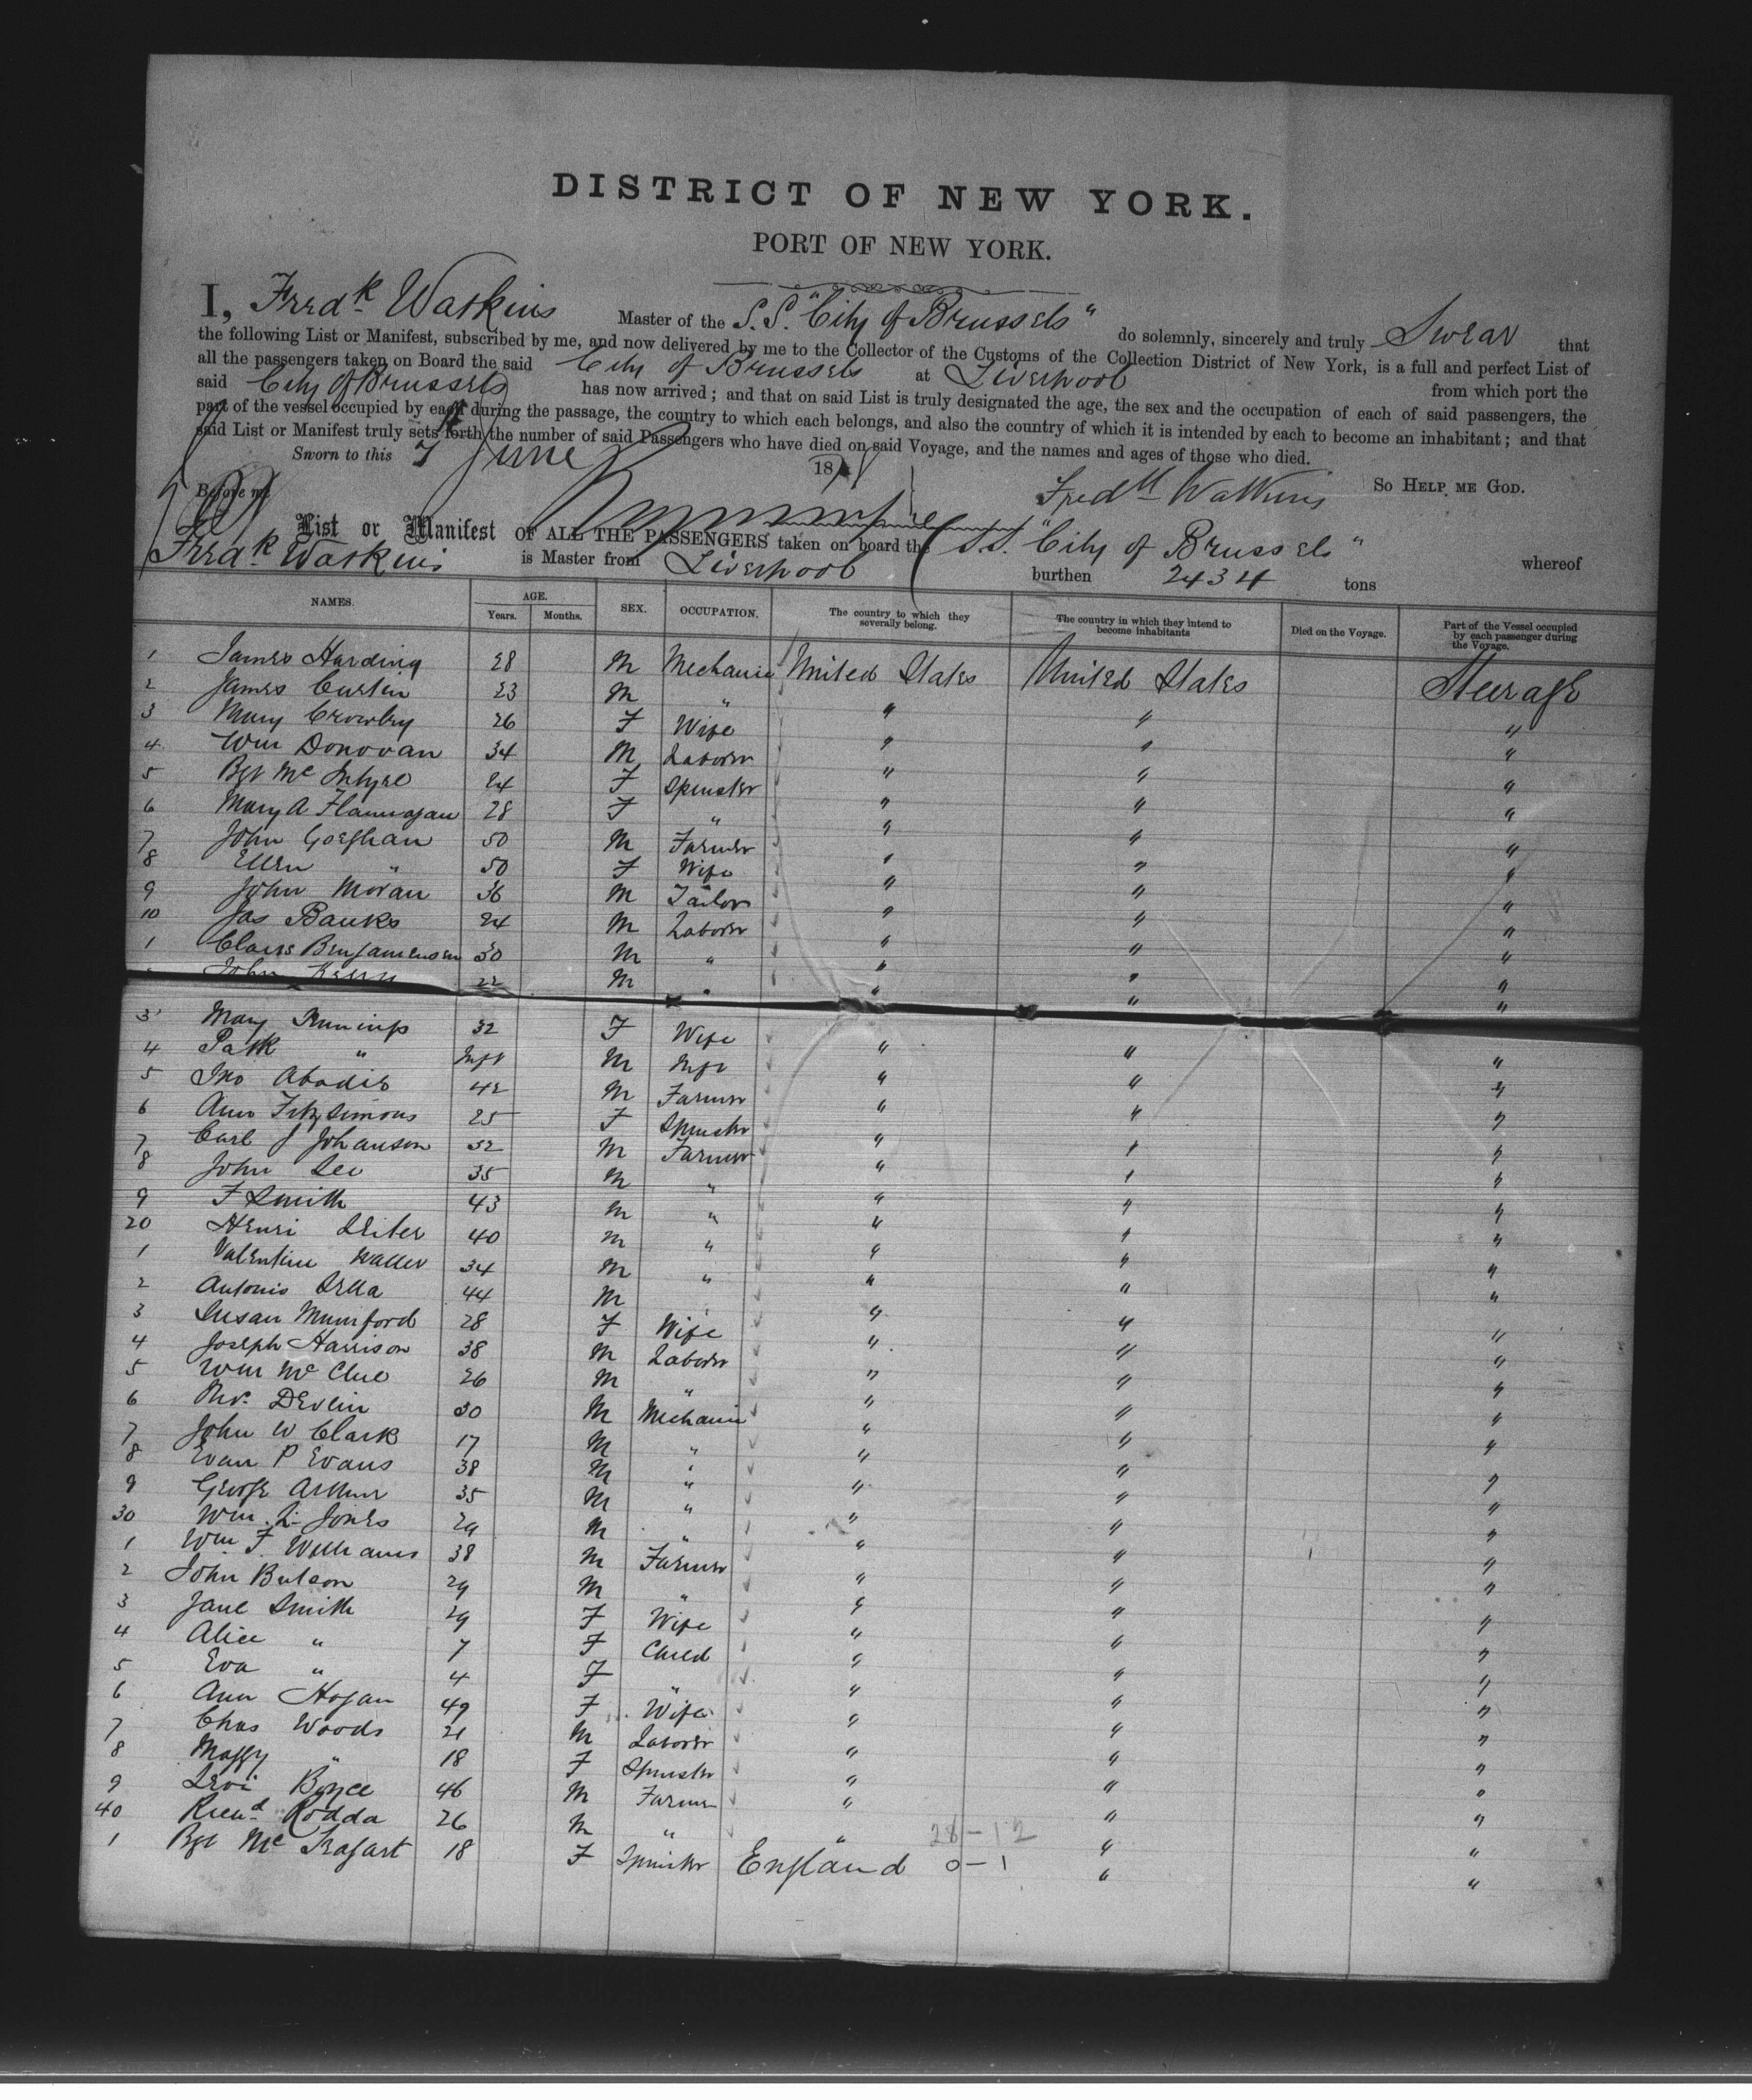 DISTRICT OF NEW YORK.
PORT OF NEW YORK.
I, Fredk Watkins Master of the S.S. "City of Brussels" do solemnly, sincerely and truly Swear that
the following List or Manifest, subscribed by me, and now delivered by me to the Collector of the Customs of the Collection District of New York, is a full and perfect List of
all the passengers taken on Board the said City of Brussels at Liverpool from which port the
said City of Brussels has now arrived; and that on said List is truly designated the age, the sex and the occupation of each of said passengers, the
part of the vessel occupied by each during the passage, the country to which each belongs, and also the country of which it is intended by each to become an inhabitant; and that
said List or Manifest truly sets forth the number of said Passengers who have died on said Voyage, and the names and ages of those who died.
Sworn to this 7 June 18
Before me Fredk Watkins So HELP ME GOD.
List or Manifest OF ALL THE PASSENGERS taken on board the S.S. "City of Brussels" whereof
Fredk Watkins is Master from Liverpool burthen 2434 tons
NAMES. AGE. Years. Months. SEX. OCCUPATION. The country to which they severally belong. The country in which they intend to become inhabitants Died on the Voyage. Part of the Vessel occupied by each passenger during the Voyage.
1 James Harding 28 M Mechanic United States United States Steerage
2 James Curtin 23 M " " " "
3 Mary Crowley 26 F Wife " " "
4 Wm Donovan 34 M Laborer " " "
5 Bgt Mc Intyre 24 F Spinster " " "
6 Mary A Flannagan 28 F " " " "
7 John Goeghan 50 M Farmer " " "
8 Ellen " 50 F Wife " " "
9 John Moran 36 M Tailor " " "
10 Jas Banks 24 M Laborer " " "
1 Claus Benjamensen 30 M " " " "
John Kerry 22 M " " " "
3 Mary 32 F Wife " " "
4 Patk " Inft M Inft " " "
5 Jno Abadie 42 M Farmer " " "
6 Ann Fitzsimons 25 F Spinster " " "
7 Carl J Johanson 32 M Farmer " " "
8 John Lee 35 M " " " "
9 F Smith 43 M " " " "
20 Henri 40 M " " " "
1 Valentine Waller 34 M " " " "
2 Antonio Sella 44 M " " "
3 Susan Mumford 28 F Wife " " "
4 Joseph Harrison 38 M Laborer " " "
5 Wm Mc Clue 26 M " " " "
6 Devlin 30 M Mechanic " " "
7 John W Clark 17 M " " " "
8 Evan P Evans 38 M " " " "
9 George Arthur 35 M " " " "
30 Wm L Jones 29 M " " " "
1 Wm F Williams 38 M Farmer " " "
2 John Butson 29 M " " " "
3 Jane Smith 29 F Wife " " "
4 Alice " 7 F Child " " "
5 Eva " 4 F " " " "
6 Ann Hogan 49 F Wife " " "
7 Chas Woods 21 M Laborer " " "
8 Maggy " 18 F Spinster " " "
9 Levi Boyce 46 M Farmer " " "
40 Richd Rodda 26 M " " 28-12 " "
1 Bgt Mc Tragart 18 F Spinster England 0-1 " "